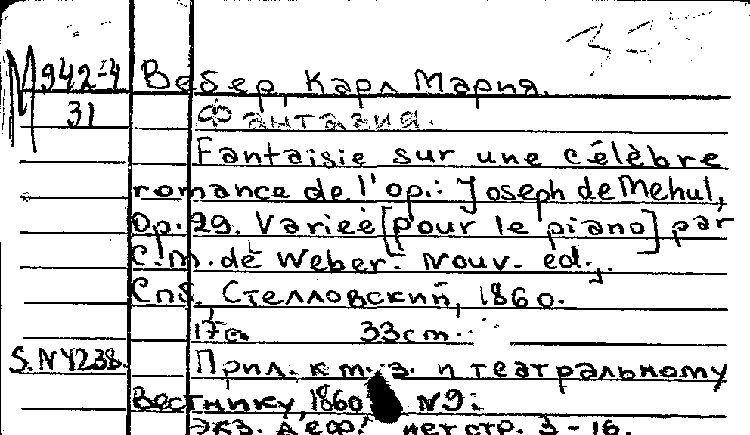 М 942-4 Вебер, Карл Мария.
31 Фантазия.
Fantaisie sur une célèbre
romance de l'op.: Joseph de Mehul,
Op. 29. Varieé [pour le piano] par
C.M. de Weber. Nouv. ed.
Спб. Стелловский, 1860.
17 с. 33 cm.
S.N 4238. Прил. к муз. и театральному
Вестнику, 1860 N9:
экз. деф. нет стр. 3-16.